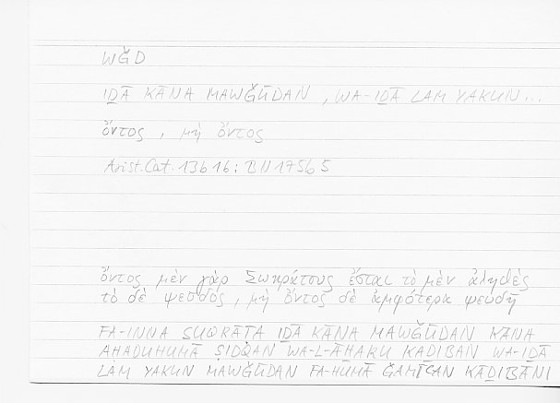 WǦD
IḎĀ KĀNA MAWǦŪDAN, WA-IḎĀ LAM YAKUN...
ὄντος, μὴ ὄντος
Arist. Cat. 13b16: BN 175b5
ὄντος μὲν γὰρ Σωκράτους ἔσται τὸ μὲν ἀληθὲς
τὸ δὲ ψεῦδος, μὴ ὄντος δὲ ἀμφότερα ψευδῆ
FA-INNA SUQRĀTA IḎĀ KĀNA MAWǦŪDAN KĀNA
AḤADUHUMĀ ṢIDQAN WA-L-ĀḪARU KAḎIBAN WA-IḎĀ
LAM YAKUN MAWǦŪDAN FA-HUMĀ ǦAMĪʿAN KĀḎIBĀNI